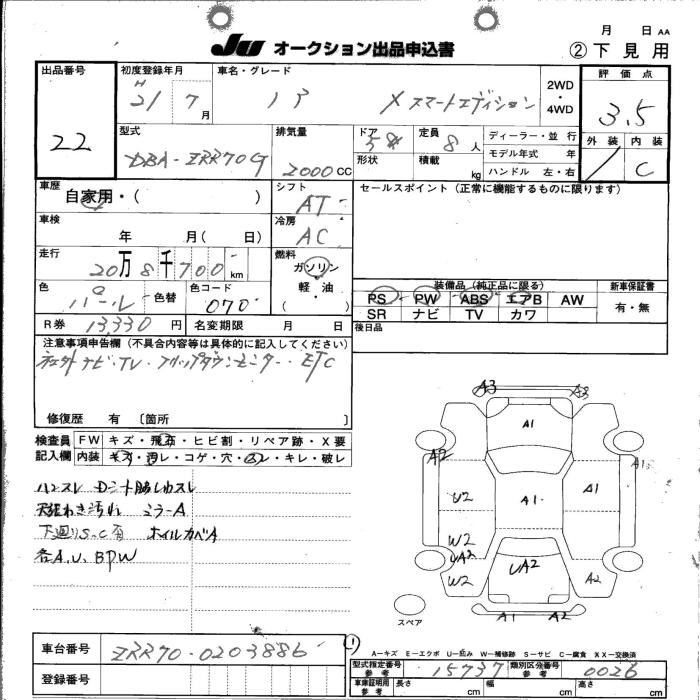 月 日 AA
JU オークション出品申込書
② 下見用
出品番号
22
初度登録年月
H21/7月
車名・グレード
ノア X スマートエディション
2WD
・
4WD
評価点
3.5
外装 内装
C
型式
DBA-ZRR70G
排気量
2000cc
ドア
5
形状
定員
8人
積載
kg
ディーラー・並行
モデル年式 年
ハンドル 左・右
車歴
自家用・( )
シフト
AT
セールスポイント(正常に機能するものに限ります)
車検
年 月( 日)
冷房
AC
走行
20万8千700km
燃料
ガソリン
軽・油
( )
色
パール
色替
色コード
070
装備品(純正品に限る)
新車保証書
PS PW ABS エアB AW
SR ナビ TV カワ
有・無
R券 13,330円
名変期限 月 日
後日品
注意事項申告欄(不具合内容等は具体的に記入してください)
社外ナビ・TV・フリップダウンモニター・ETC
修復歴 有 〔箇所 〕
検査員
記入欄
FW キズ・飛石・ヒビ割・リペア跡・X要
内装 キズ・汚レ・コゲ・穴・スレ・キレ・破レ
ハンスレ
ミラーA
下廻りS.C有 ホイルカベA
各A.U. BPW
A3
A1
A2
A1
U2
A1
A1
W2
UA2
W2
UA2
A2
A1
A2
スペア
A-キズ E-エクボ U-凹み W-補修跡 S-サビ C-腐食 XX-交換済
車台番号
ZRR70-0203886
登録番号
型式指定番号
参考
15737
類別区分番号
参考
0026
車庫証明用
参考
長さ cm
幅 cm
高さ cm